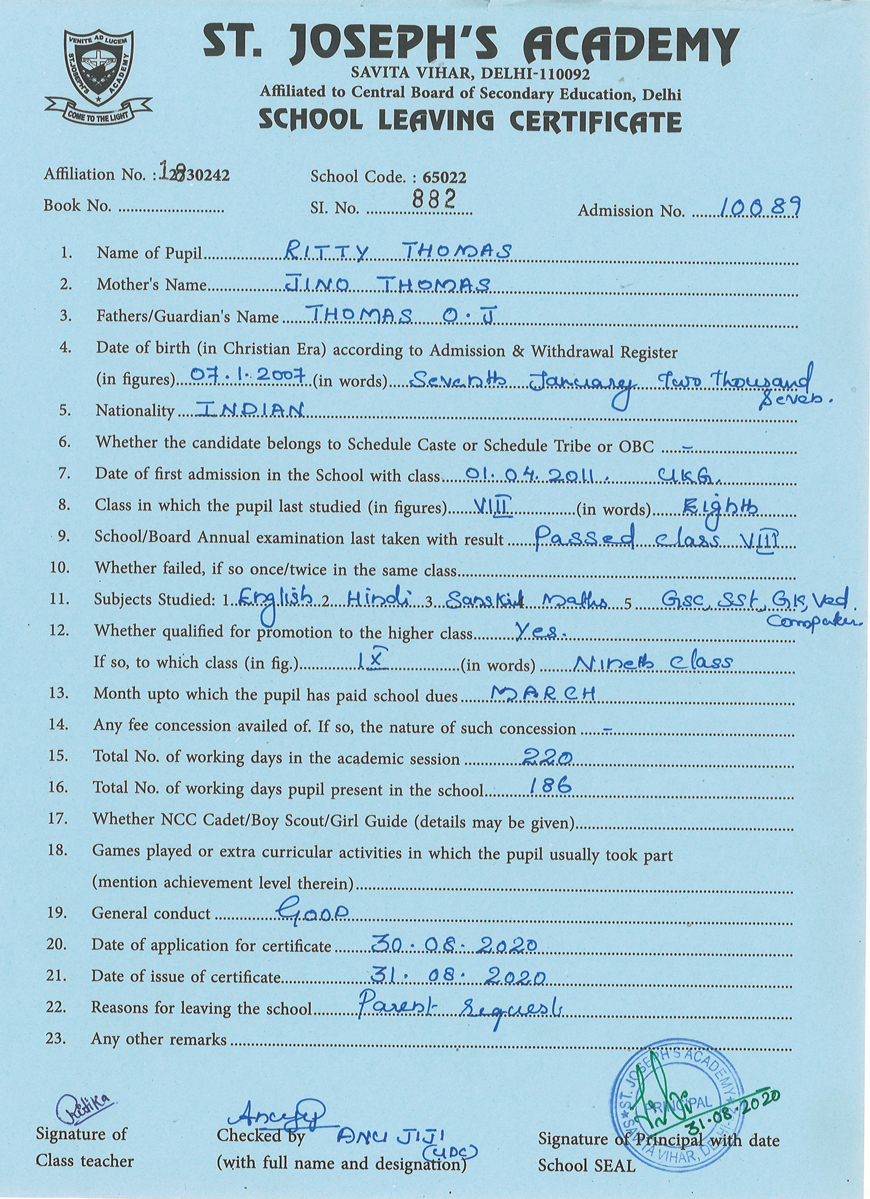 VENITE AD LUCEM
ST. JOSEPH'S ACADEMY
COME TO THE LIGHT
ST. JOSEPH'S ACADEMY
SAVITA VIHAR, DELHI-110092
Affiliated to Central Board of Secondary Education, Delhi
SCHOOL LEAVING CERTIFICATE
Affiliation No. : 2730242 School Code. : 65022
Book No. ........................... SI. No. ......882...... Admission No. ......10089
1. Name of Pupil......RITTY THOMAS......
2. Mother's Name......JINO THOMAS......
3. Fathers/Guardian's Name ......THOMAS O.J......
4. Date of birth (in Christian Era) according to Admission & Withdrawal Register
(in figures)...07.1.2007...(in words)...Seventh January Two Thousand
Seven.
5. Nationality......INDIAN......
6. Whether the candidate belongs to Schedule Caste or Schedule Tribe or OBC ...–...
7. Date of first admission in the School with class...01.04.2011. UKG.
8. Class in which the pupil last studied (in figures)...VIII...(in words)...Eighth
9. School/Board Annual examination last taken with result ...Passed class VIII
10. Whether failed, if so once/twice in the same class......
11. Subjects Studied: 1. English 2. Hindi 3. Sanskrit Maths 5 Gsc, SSt, GK, Ved
Computer
12. Whether qualified for promotion to the higher class......Yes.
If so, to which class (in fig.)......IX......(in words) ......Nineth class
13. Month upto which the pupil has paid school dues ......MARCH
14. Any fee concession availed of. If so, the nature of such concession ...–...
15. Total No. of working days in the academic session ......220
16. Total No. of working days pupil present in the school......186
17. Whether NCC Cadet/Boy Scout/Girl Guide (details may be given)......
18. Games played or extra curricular activities in which the pupil usually took part
(mention achievement level therein)......
19. General conduct ......GOOD
20. Date of application for certificate ......30.08.2020
21. Date of issue of certificate......31.08.2020
22. Reasons for leaving the school......Parent request
23. Any other remarks ......
ST. JOSEPH'S ACADEMY
PRINCIPAL
SAVITA VIHAR, DELHI
31.08.2020
Ritika
Signature of Class teacher
Checked by ANU JIJI
(UDC)
(with full name and designation)
Signature of Principal with date
School SEAL